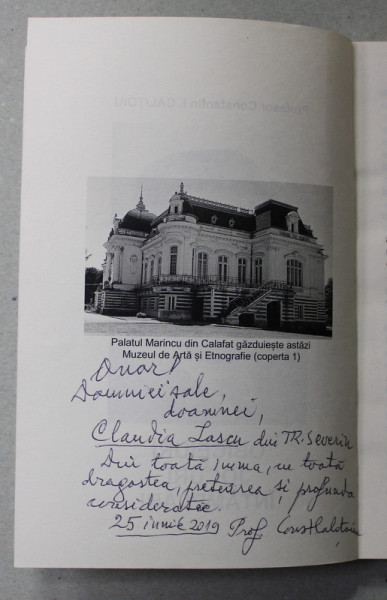 Profesor Constantin I. CALOTOIU
Palatul Marincu din Calafat găzduiește astăzi
Muzeul de Artă și Etnografie (coperta 1)
Onor!
Domniei sale,
doamnei,
Claudia Lascu din TR. Severin
Din toată inima, cu toată
dragostea, prețuirea si profunda
considerație.
25 iunie 2019 Prof.